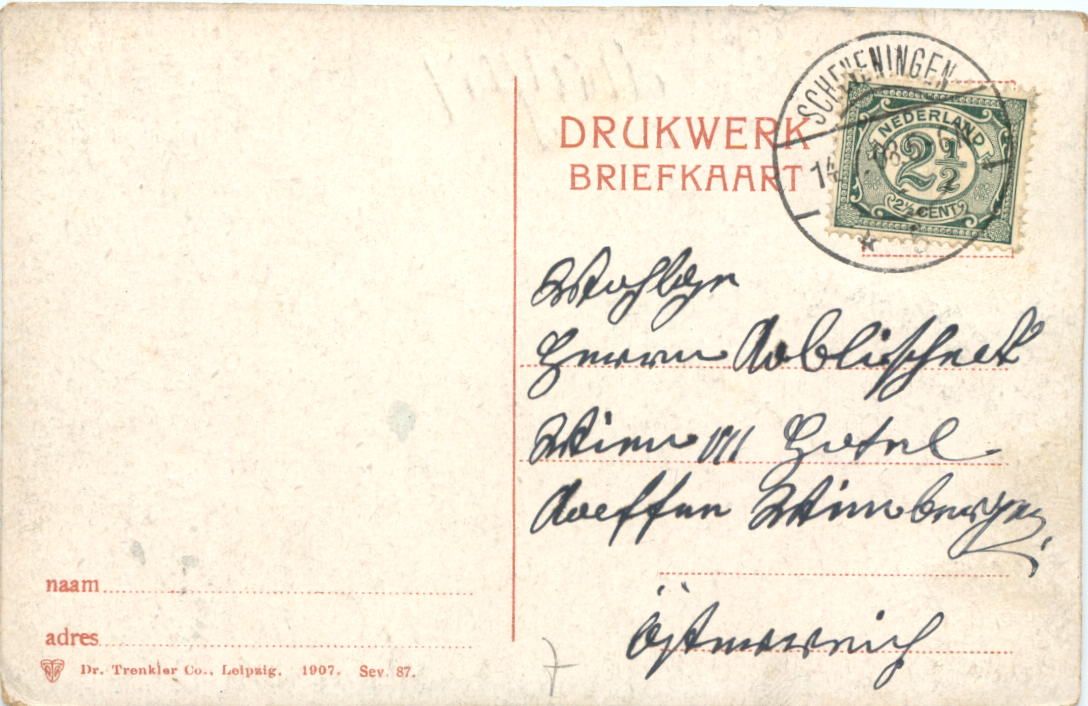 DRUKWERK
BRIEFKAART
SCHEVENINGEN
14
NEDERLAND
2½
2½ CENT
Wohlge
Herrn
Wien VII Hotel
Wimberger
Österreich
naam
adres
Dr. Trenkler Co., Leipzig. 1907. Sev. 87.